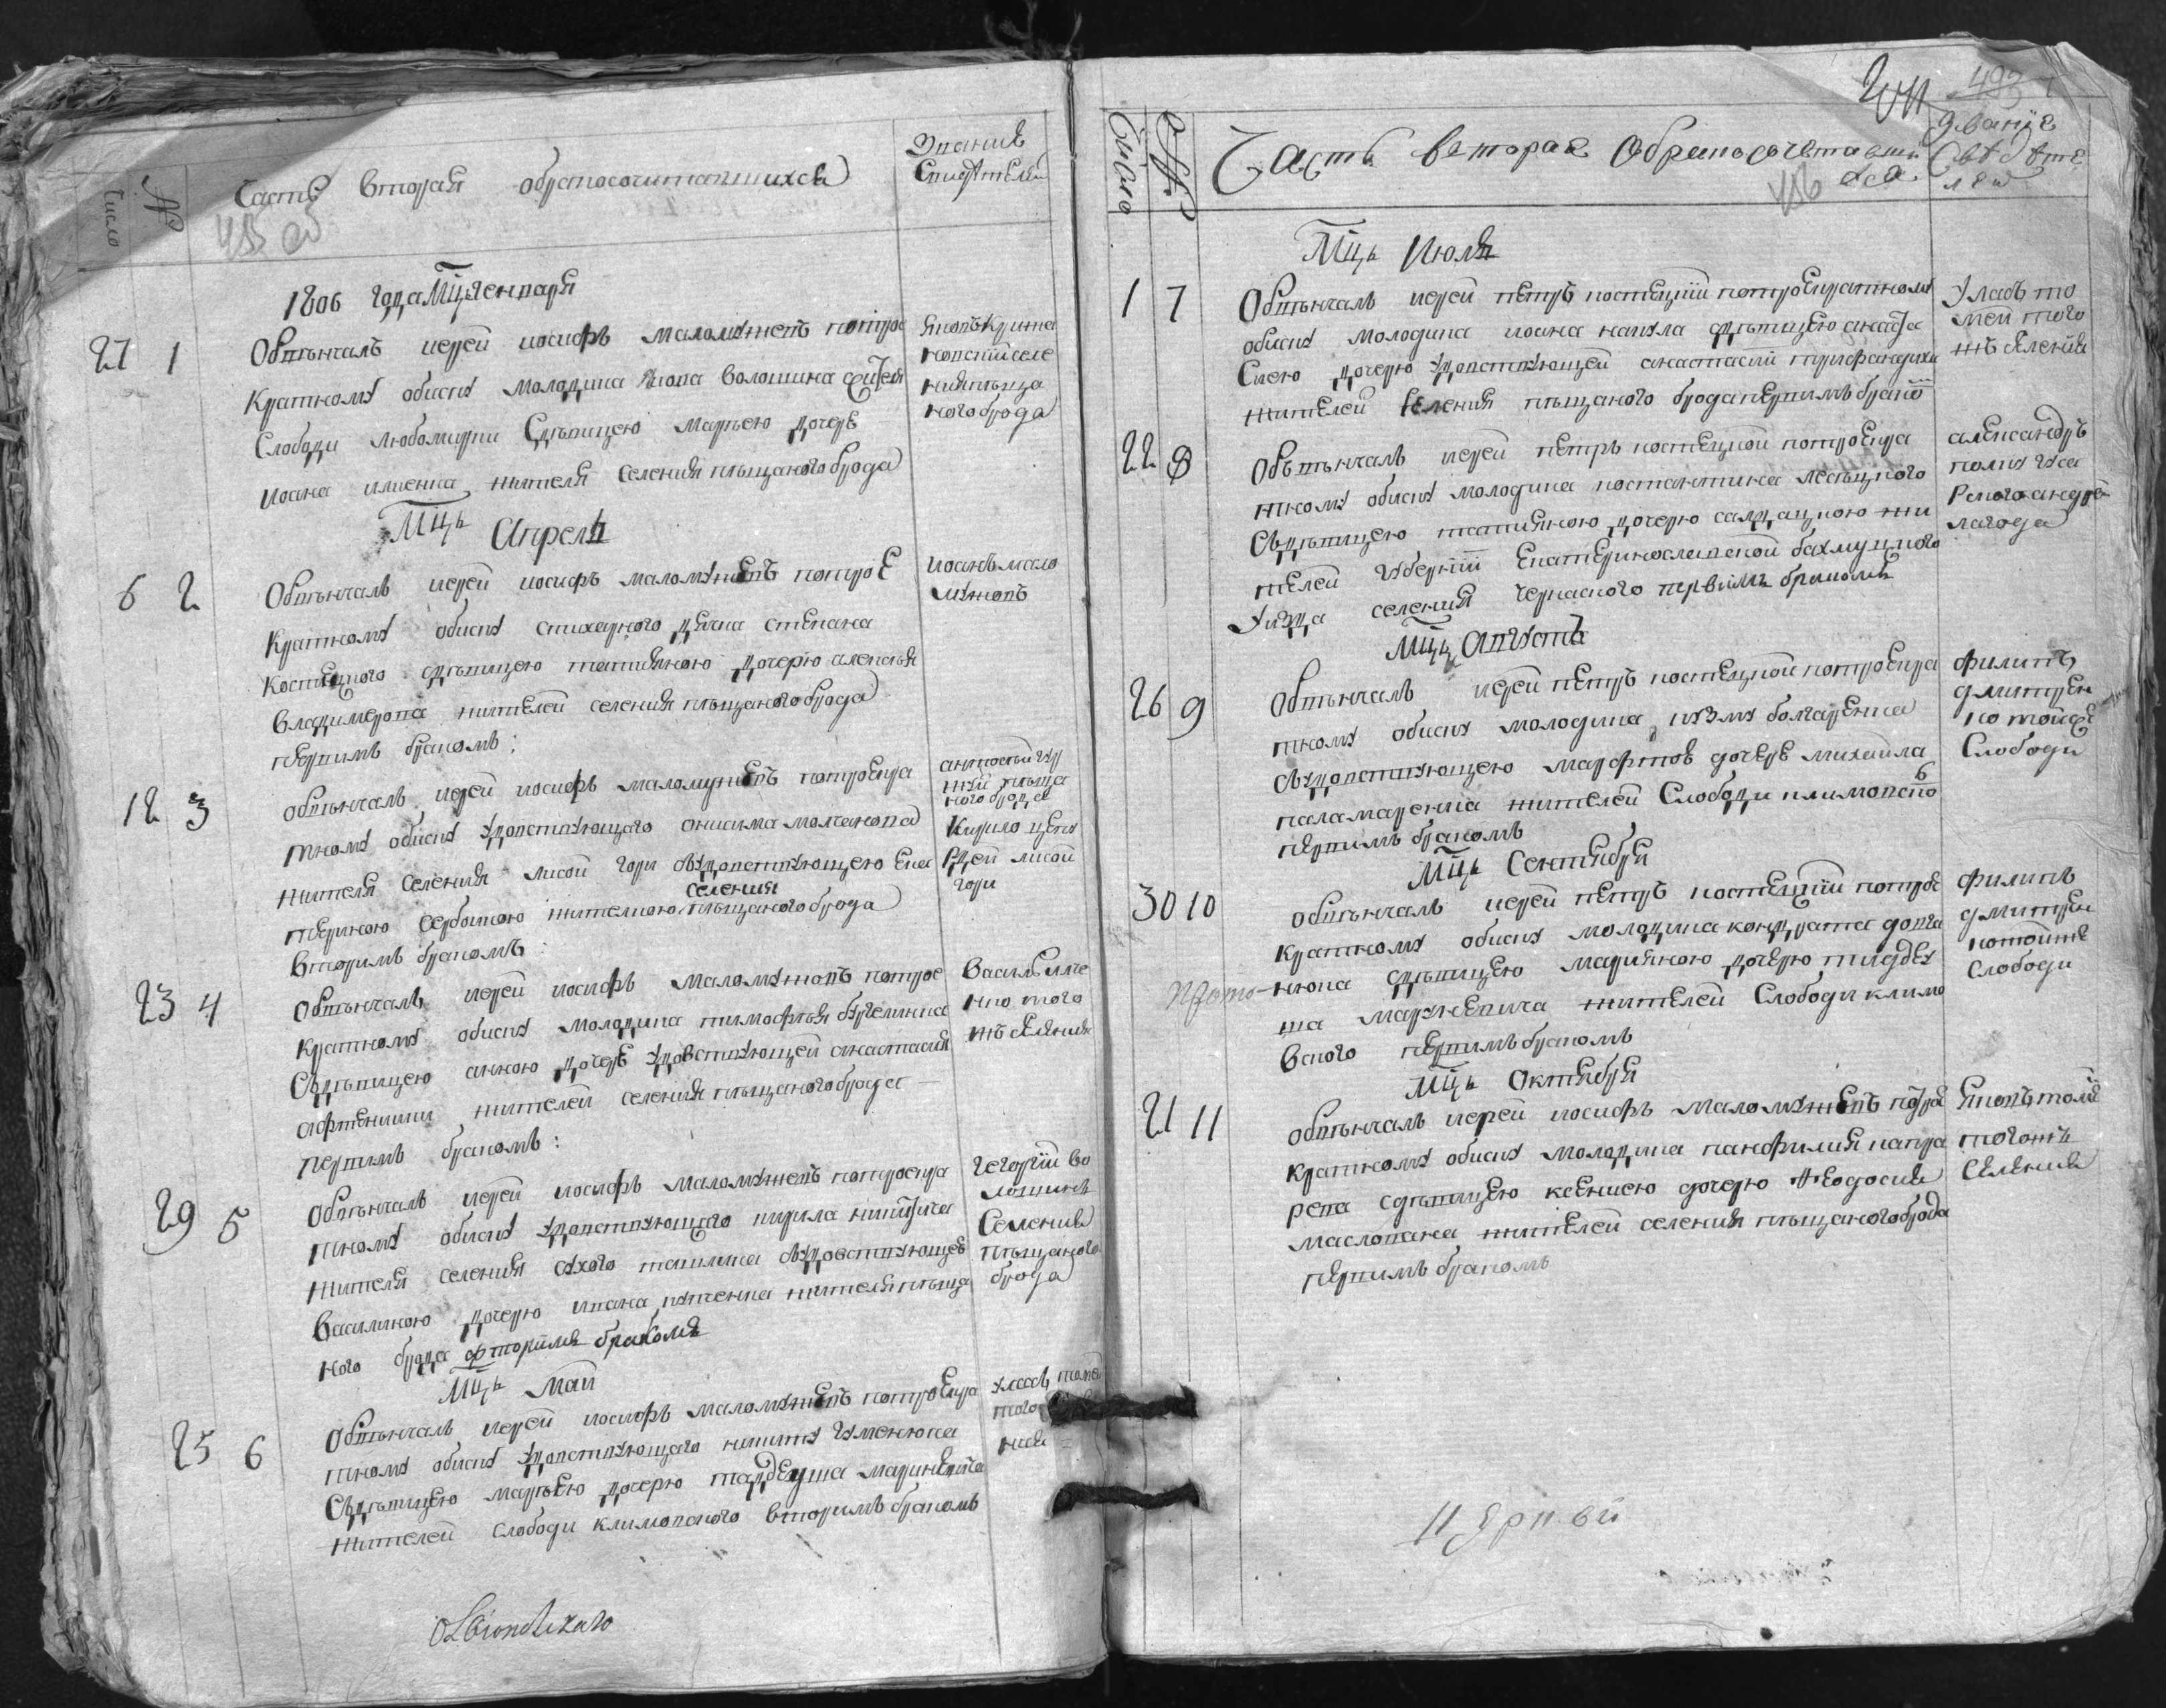 Число
№
Часть вторая обракосочитавшихся
Звания
Свидетелей
455 об
1806 года Мцъ енваря
27 1 Обвѣнчалъ иерей иосифъ маломужевъ по трое
кратному обиску молодика Якова волошина жителя
Слободи любомирки Сдѣвицею марьею дочерь
иоана илиенка жителя селения пѣщаного брода
Яковъ Крижа
новский селе
ния пѣща
ного брода
Мцъ Апреля
6 2 Обвѣнчалъ иерей иосифъ маломужевъ по трое
кратному обиску стихарного дячка стефана
костецкого сдѣвицею татияною дочерю алексѣя
владимерова жителей селения пѣщаного брода
первимъ бракомъ:
иоанъ мало
мужовъ
12 3 обвѣнчалъ иерей иосифъ маломужевъ по троекра
тному обиску удовствующаго онисима молчанова
жителя селения лисой гори сѫудовствующею Ека
териною сербиною жителкою селения пѣщаного брода
вторимъ бракомъ:
антоний гу
жий пѣща
ного брода
Кирило цеху
рдей лисой
гори
23 4 Обвѣнчалъ иерей иосифъ маломужовъ по трое
кратному обиску молодика тимофѣя
Сдѣвицею анною дочерь удовствующей анастасии
жителей селения пѣщаного брода
первимъ бракомъ:
Василь
нко того
жъ селения
29 5 Обвѣнчалъ иерей иосифъ маломужевъ по троекра
тному обиску удовствующаго кирила
жителя селения сухого ташлика сѫудовствующею
василикою дочерю ивана жителя пѣща
ного брода фторимъ бракомъ
Георгий во
лошинъ
Селения
пѣщаного
брода
Мцъ Май
25 6 Обвѣнчалъ иерей иосифъ маломужевъ по троекра
тному обиску удовствующаго никиту гуменюка
Сдѣвицею марьею дочерю тадеуша маринкевича
жителей слободи климовского вторимъ бракомъ
Уласъ
того
ния
Число
№
Часть вторая обракосочетавши
хся
Звание
Свѣдѣте
лей
493
456
Мцъ Июля
1 7 Обвѣнчалъ иерей петръ костецкий по троекратному
обиску молодика иоана какула сдѣвицею
Сиею дочерю удовствующей анастасии
жителей селения пѣщаного брода первимъ бракомъ
Уласъ то
мей того
жъ селения
22 8 Обвѣнчалъ иерей петръ костецкой по троекра
тному обиску молодика костантина лесѣцкого
Сдѣвицею татияною дочерю салдацкою жи
телей губернии Екатеринославской бахмуцкого
уизда селения черкаского первимъ бракомъ
александръ
полку
Мцъ Августъ
26 9 Обвѣнчалъ иерей петръ костецкой по троекра
тному обиску молодика кузму болгаренка
сѫудовствующею марфтою дочерь михаила
паламаренка жителей Слободи климовско
первимъ бракомъ
филипъ
дмитрен
ко тойже
Слободи
Мцъ Сентября
30 10 обвѣнчалъ иерей петръ костецкий по трое
кратному обиску молодика кондрата довга
нюка сдѣвицею марияною дочерю тадеу
ша маринкевича жителей Слободи климо
вского первимъ бракомъ
филипъ
дмитрен
ко тойже
слободи
прото-
Мцъ Октября
21 11 обвѣнчалъ иерей иосифъ маломужевъ по трое
кратному обиску молодика панфилия
сдѣвицею ксениею дочерю Феодосия
маслована жителей селения пѣщаного брода
первимъ бракомъ
Яковъ
тогожъ
Селения